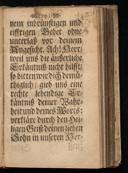 nem inbrünstigen und
eifrigen Gebet ohne
unterlaß vor deinem
Angesicht. Ach! Herr,
weil uns die äusserliche
Erkäntnüß nicht hilfft,
so bitten wir dich demü-
thiglich; gieb uns eine
rechte lebendige Er-
käntnüß deiner Wahr-
heit und deines Worts,
verkläre durch den Hei-
ligen Geist deinen lieben
Sohn in unseren Her-